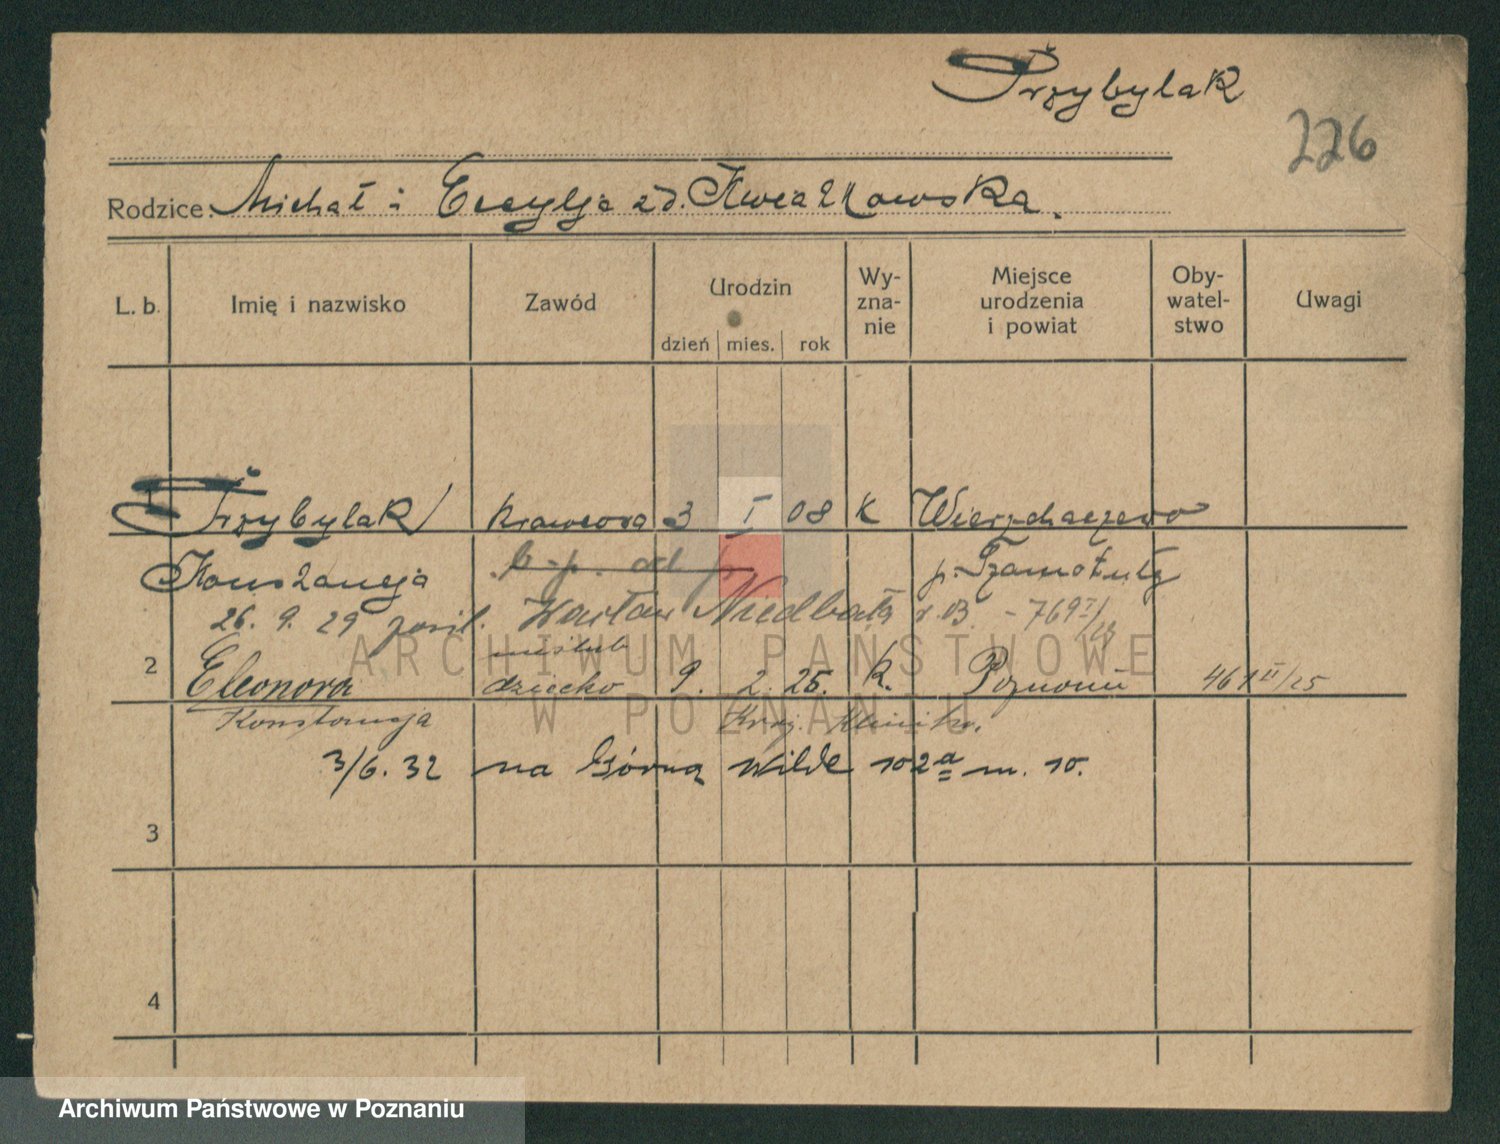 Przybylak
226
Rodzice: Michał i Cecylja zd. Kwiatkowska.
L. b. Imię i nazwisko Zawód Urodzin dzień mies. rok Wy-zna-nie Miejsce urodzenia i powiat Oby-watel-stwo Uwagi
Przybylak krawcowa 3 I 08 K Wierzchaczewo
Konstancja b. p. od p. Szamotuły
26. 9. 29 Wacław Niedbała - 769
nieślub
2 Eleonora dziecko 9. 2. 25. k. Poznań 461 II/25
Konstancja Klinika.
3/6. 32 na Górną Wildę 102a m. 10.
3
4
ARCHIWUM PAŃSTWOWE
W POZNANIU
Archiwum Państwowe w Poznaniu